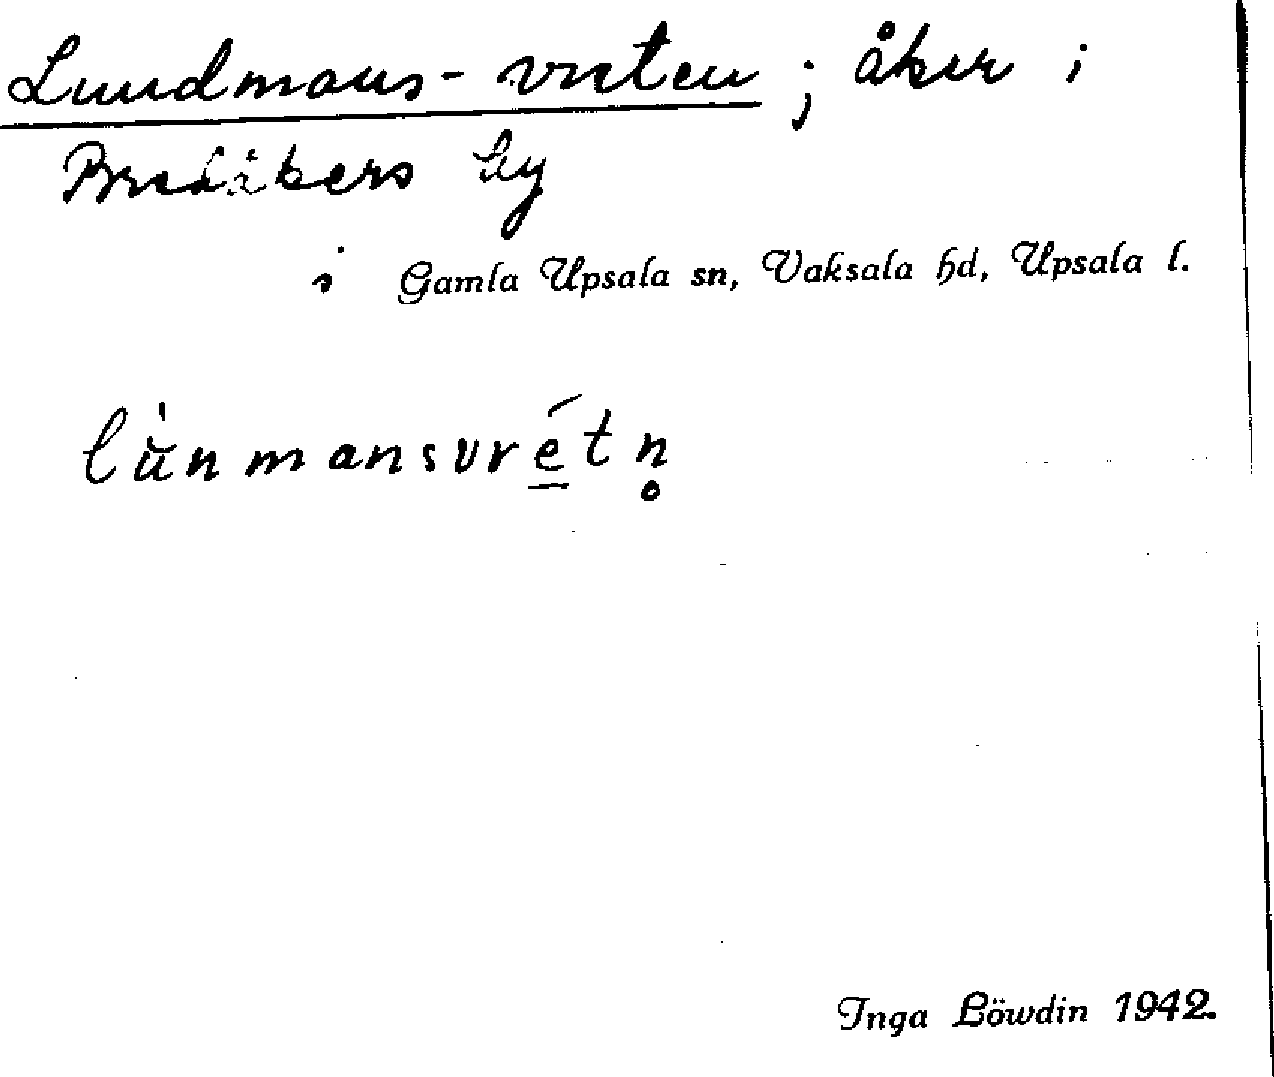 Lundmans-vreten ; åker i
Bredåkers by
i Gamla Upsala sn, Vaksala hd, Upsala l.
lu̇̀nmansvré̲tn̥
Inga Löwdin 1942.